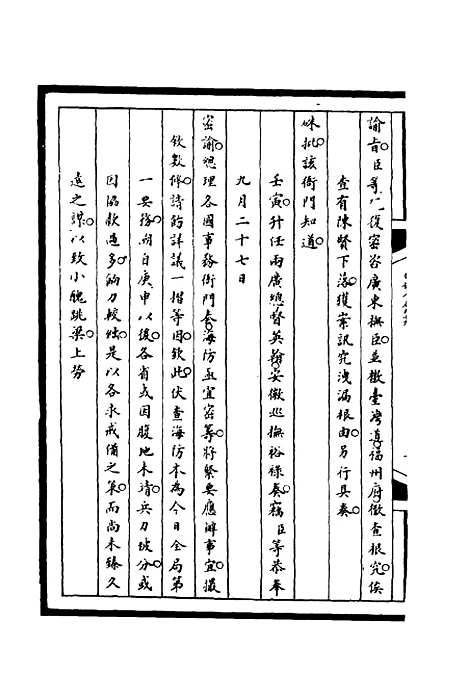 諭旨臣等復密咨廣東撫臣並檄臺灣道福州府徹查根究俟
查有陳賢下落獲案訊究洩漏根由另行具奏
硃批該衙門知道
壬寅升任兩廣總督英翰安徽巡撫裕祿奏竊臣等恭奉
九月二十七日
密諭總理各國事務衙門奏海防亟宜密籌將緊要應辦事宜撮
敘數條請飭詳議一摺等因欽此伏查海防本為今日全局第
一要務溯自庚申以後各省或因腹地未靖兵力坡分或
因協款過多餉力較絀是以各求戒備之策而尚未臻久
遠之謀以致小醜跳梁上勞